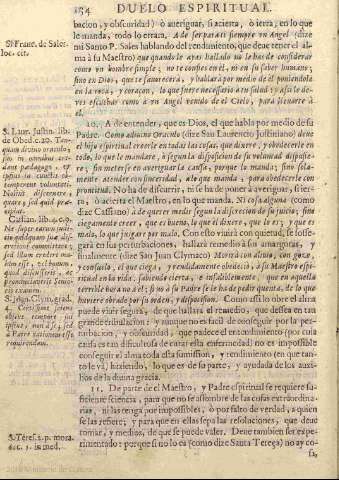 154 DUELO ESPIRITUAL.
bacion, y obscuridad) ò averiguar, si acierta, ò ierra, en lo que
le manda, todo lo erram. A de ser para ti siempre un Angel (dize
mi Santo P. Sales hablando del rendimiento, que deve tener el al-
ma à su Maestro) que quando le ayas hallado no le has de considerar
como un hombre simple; no te confies en el, ni en su saber humano;
sino en Dios, que te favorecerà, y hablarà por medio de el poniendole
en la boca, y coraçon, lo que fuere necessario à tu salud: y assi le de-
ves escuchar como à un Angel venido de el Cielo, para llevarte à
èl.
10. A de entender, que es Dios, el que habla por medio de su
Padre. Como adivino Oraculo (dize San Laurencio Justiniano) deve
el hijo espiritual creerle en todas las cosas, que dixere, y obedecerle en
todo, lo que le mandare, ò segun la disposicion de su voluntad dispusie-
re; sin meterse en averiguar la causa, porque lo manda; sino sola-
mente atender con sinceridad, à lo que manda, para obedecerle con
promtitud. No ha de discurrir, ni se ha de poner à averiguar, si ier-
ra, ò acierta el Maestro, en lo que manda. Ni cosa alguna (como
dize Cassiano) à de querer medir segun la discrecion de su juicio; sino
ciegamente creer, que es bueno, lo que èl dixere, que lo es; y que es
malo, lo que juzgare por malo. Con esto vivirà con quietud, se losse-
garà en sus perturbaciones, hallarà remedio à sus amarguras, y
finalmente (dize San Juan Clymaco) Morirà con alivio, con gozo,
y consuelo, el que ciega, y rendidamente obedeciò, à su Maestro espi-
ritual en la vida, sabiendo cierta, è infaliblemente, que en aquella
terrible hora no à el; sino à su Padre se le ha de pedir quenta, de lo que
huviere obrado por su orden, y disposicion. Como assi lo obre el alma
puede vivir segura, de que hallarà el remedio, que dessea en tan
grande tribulacion; y aunque no es facil de conseguir por la per-
turbacion, y obscuridad, que padece el entendimiento (por cuia
causa es tan dificultosa de curar esta enfermedad) no es impossible
conseguir el alma toda essa sumission, y rendimiento (en que tan-
to le và) haziendo, lo que es de su parte, y ayudada de los auxi-
lios de la divina gracia.
11. De parte de el Maestro, y Padre espiritual se requiere su-
ficiente sciencia, para que no se assombre de las cosas extraordina-
rias, ni las tenga por impossibles, ò por falto de verdad, a quien
se las refiere; y para que en ellas sepa las resoluciones, que deve
tomar, y medios, de que se puede valer. Deve tambien ser expe-
rimentado: porque si no lo es (como dize Santa Teresa) no ay co-
sa,
S. Franc. de Sales
loc. cit.
S. Laur. Justin. lib.
de Obed. c. 20. Tan-
quam divino oraculo,
sic in omnibus cre-
dant pædagogo
Cassian. lib. 4. c. 9.
S. Joan. Clym. grad.
4.
S. Teres. 2. p. mora.
6. c. 1. in med.